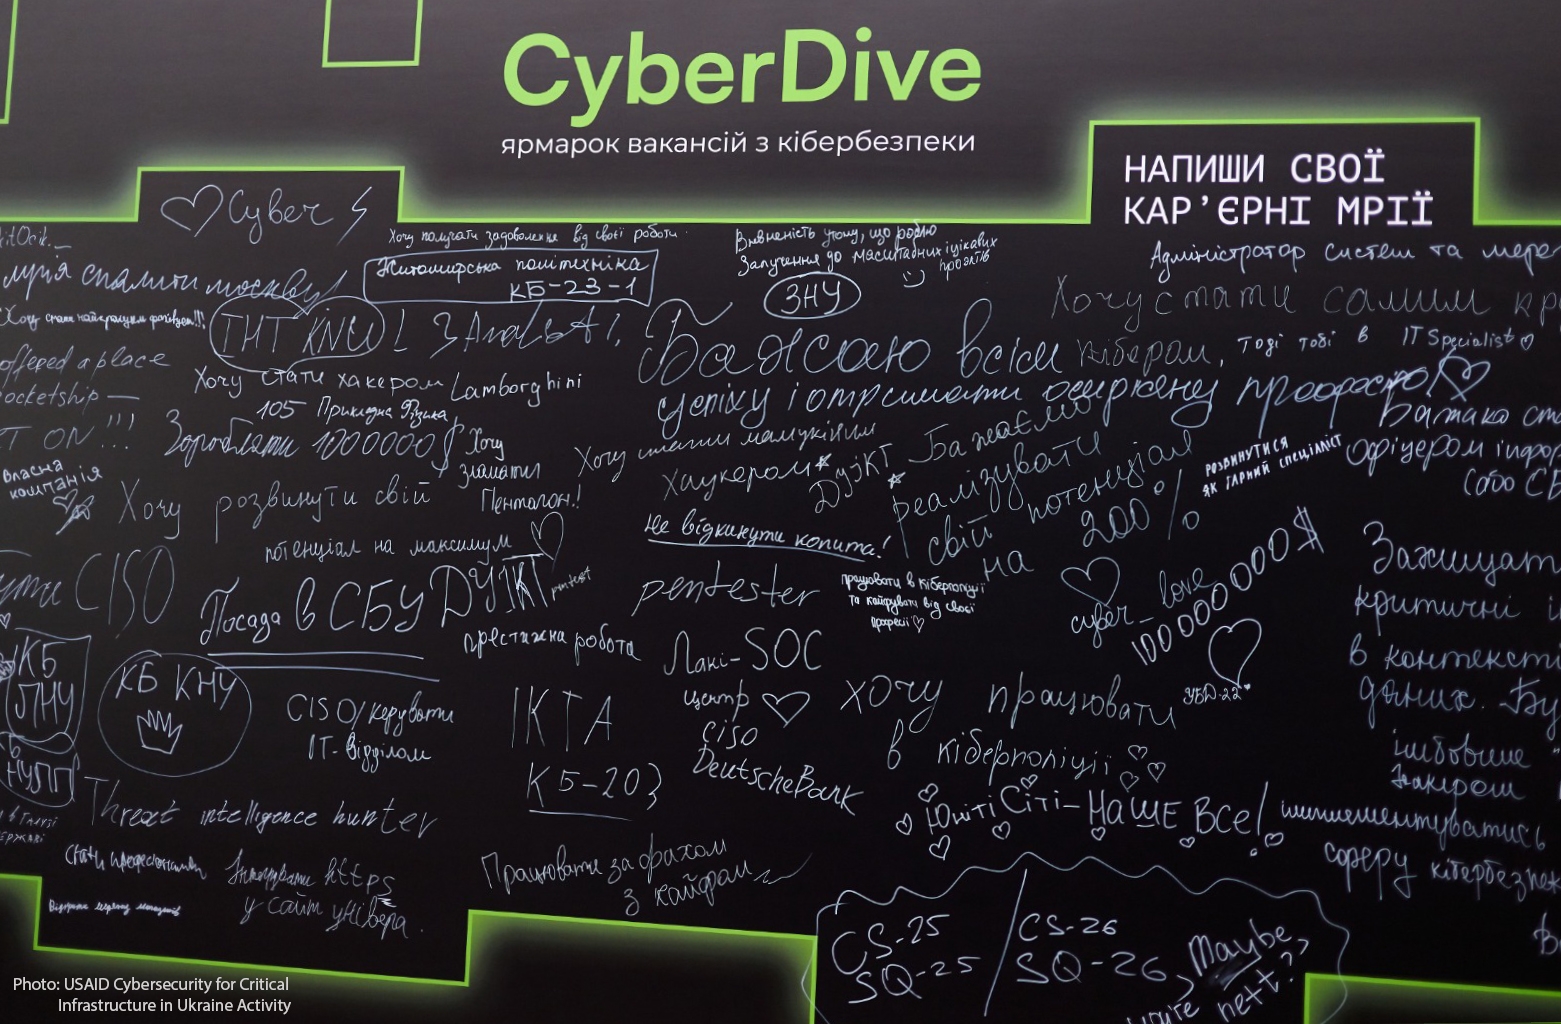 CyberDive
ярмарок вакансій з кібербезпеки
НАПИШИ СВОЇ
КАР’ЄРНІ МРІЇ
Cyber
Хочу получати задоволення від своєї роботи
Впевненість у тому, що роблю
Залучення до масштабних і цікавих
проєктів
Адміністратор систем та
мрія спалити москву
Житомирська політехніка
КБ-23-1
ЗНУ
Хочу стати самим
ІНТ KNU
Бажаю всім кіберам,
тоді тобі в IT Specialist
успіху і отримати омріяну професію
offered a place
rocketship —
ON!!!
Хочу стати хакером Lamborghini
105 Прикладна Фізика
Заробляти 1000000$
Хочу
зламати
Пентагон!
Хочу стати
хаукером
ДУІКТ
Бажаємо
реалізувати
свій потенціал
на 200%
РОЗВИНУТИСЯ
ЯК ГАРНИЙ СПЕЦІАЛІСТ
офіцером
власна
компанія
Хочу розвинути свій
потенціал на максимум
Не відкинути копита!
1000000000$
CISO
Посада в СБУ
ДУІКТ
pentest
pentester
працювати в Кіберполіції
та кайфувати від своєї
професії
cyber_love
Захищат
критичні
в контексті
даних.
престижна робота
Лакі-SOC
центр
ciso
DeutscheBank
КБ
КБ КНУ
НУЛП
CISO/керувати
ІТ-відділом
ІКТА
КБ-203
хочу працювати
в кіберполіції
УБД-22
Юніті Сіті - НАШЕ ВСЕ!
Threat intelligence hunter
сферу кібербезпек
Стати
https
у сайт універа.
Працювати за фахом
з кайфом
CS-25
SQ-25
CS-26
SQ-26
Maybe
next??
Photo: USAID Cybersecurity for Critical
Infrastructure in Ukraine Activity